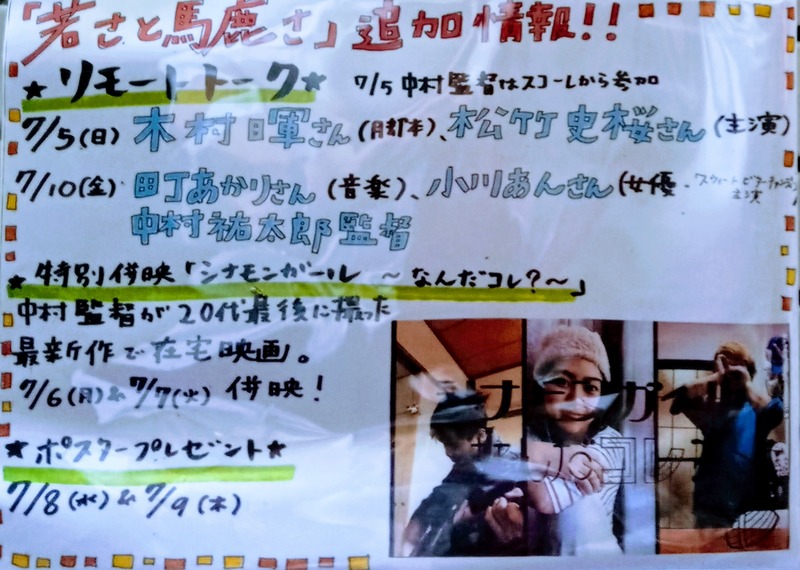 「若さと馬鹿さ」追加情報!!
★リモートトーク★ 7/5 中村監督はスコーレから参加
7/5(日) 木村暉さん(脚本)、松竹史桜さん(主演)
7/10(金) 田丁あかりさん(音楽)、小川あんさん(女優・スウィートビターキャンディ主演
中村祐太郎監督
★特別併映「シナモンガール ～なんだコレ？～」
中村監督が20代最後に撮った
最新作で在宅映画。
7/6(月)&7/7(火) 併映！
★ポスタープレゼント★
7/8(水)&7/9(木)